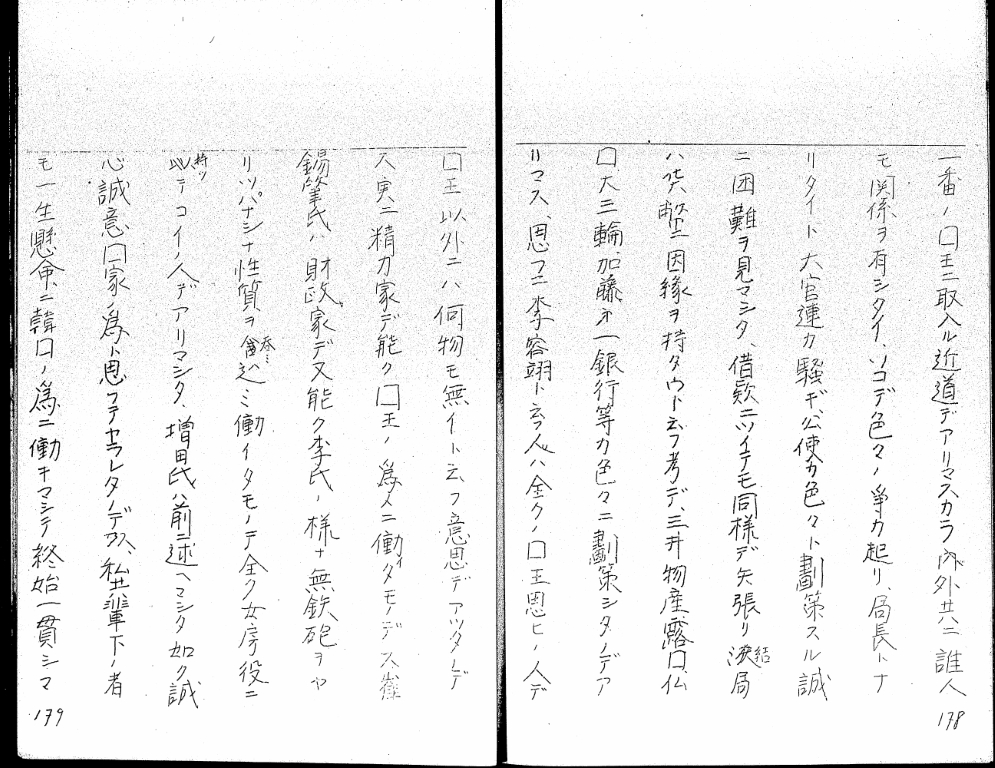 一番ノ囗王ニ取入ル近道デアリマスカラ内外共ニ誰人
モ関係ヲ有シタイ、ソコデ色々ノ争カ起リ、局長トナ
リタイト大官連カ騒ギ公使カ色々ト劃策スル誠
ニ困難ヲ見マシタ、借款ニツイテモ同様デ矢張リ結局
ハ此弊ニ因縁ヲ持タウト云フ考デ、三井物産露囗、仏
囗、大三輪、加藤第一銀行等カ色々ニ劃策シタノデア
リマス、思フニ李容翊ト云フ人ハ全クノ囗王思ヒノ人デ
178
囗王以外ニハ何物モ無イト云フ意思デアツタノデ
ス実ニ精力家デ能ク囗王ノ為メニ働イタモノデス
錫肇氏ハ財政家デ又能ク李氏ノ様ナ無鉄砲ヲヤ
リツパナシナ性質ヲ呑ミ込ミ働イタモノデ全ク女房役ニ
持ツテコイノ人デアリマシタ、増田氏ハ前ニ述ヘマシタ如ク誠
心誠意囗家ノ為ト思フテヤラレタノデスカヽ私共輩下ノ者
モ一生懸命ニ韓囗ノ為ニ働キマシテ終始一貫シマ
179